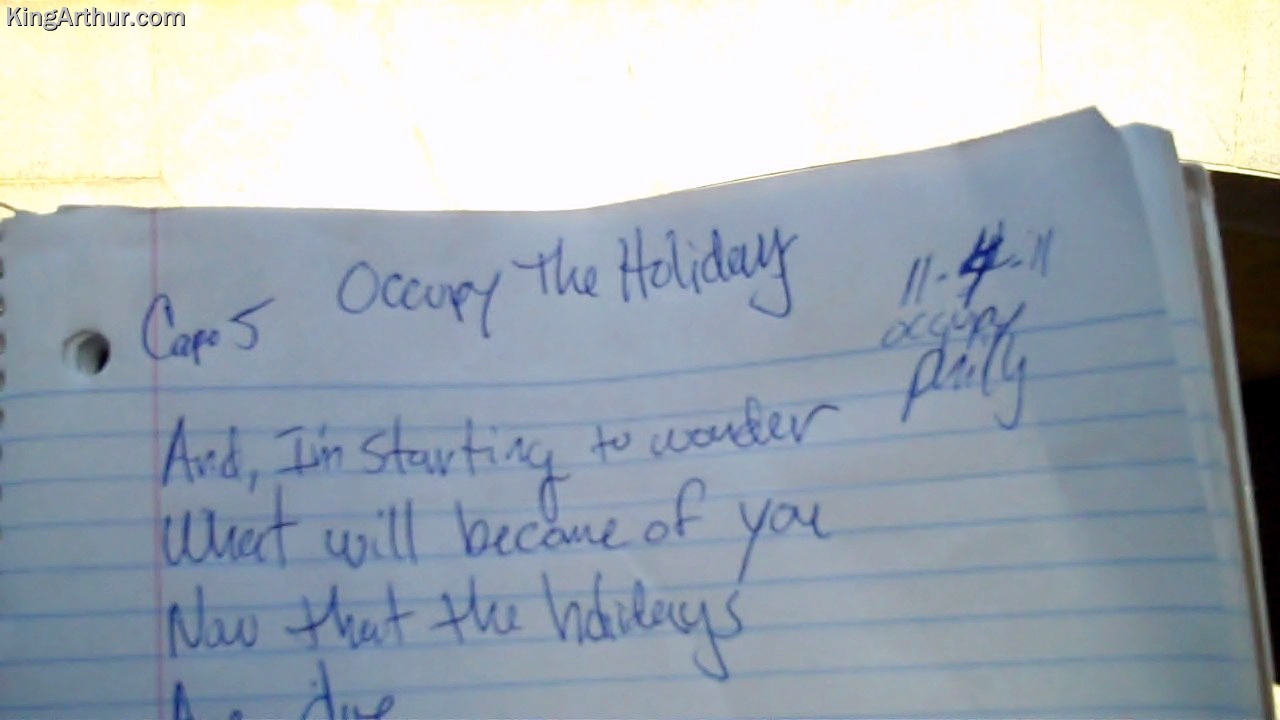 KingArthur.com
Occupy The Holiday
11-4-11
Capo 5
occupy
philly
And, I'm starting to wonder
What will become of you
Now that the holidays
Are due